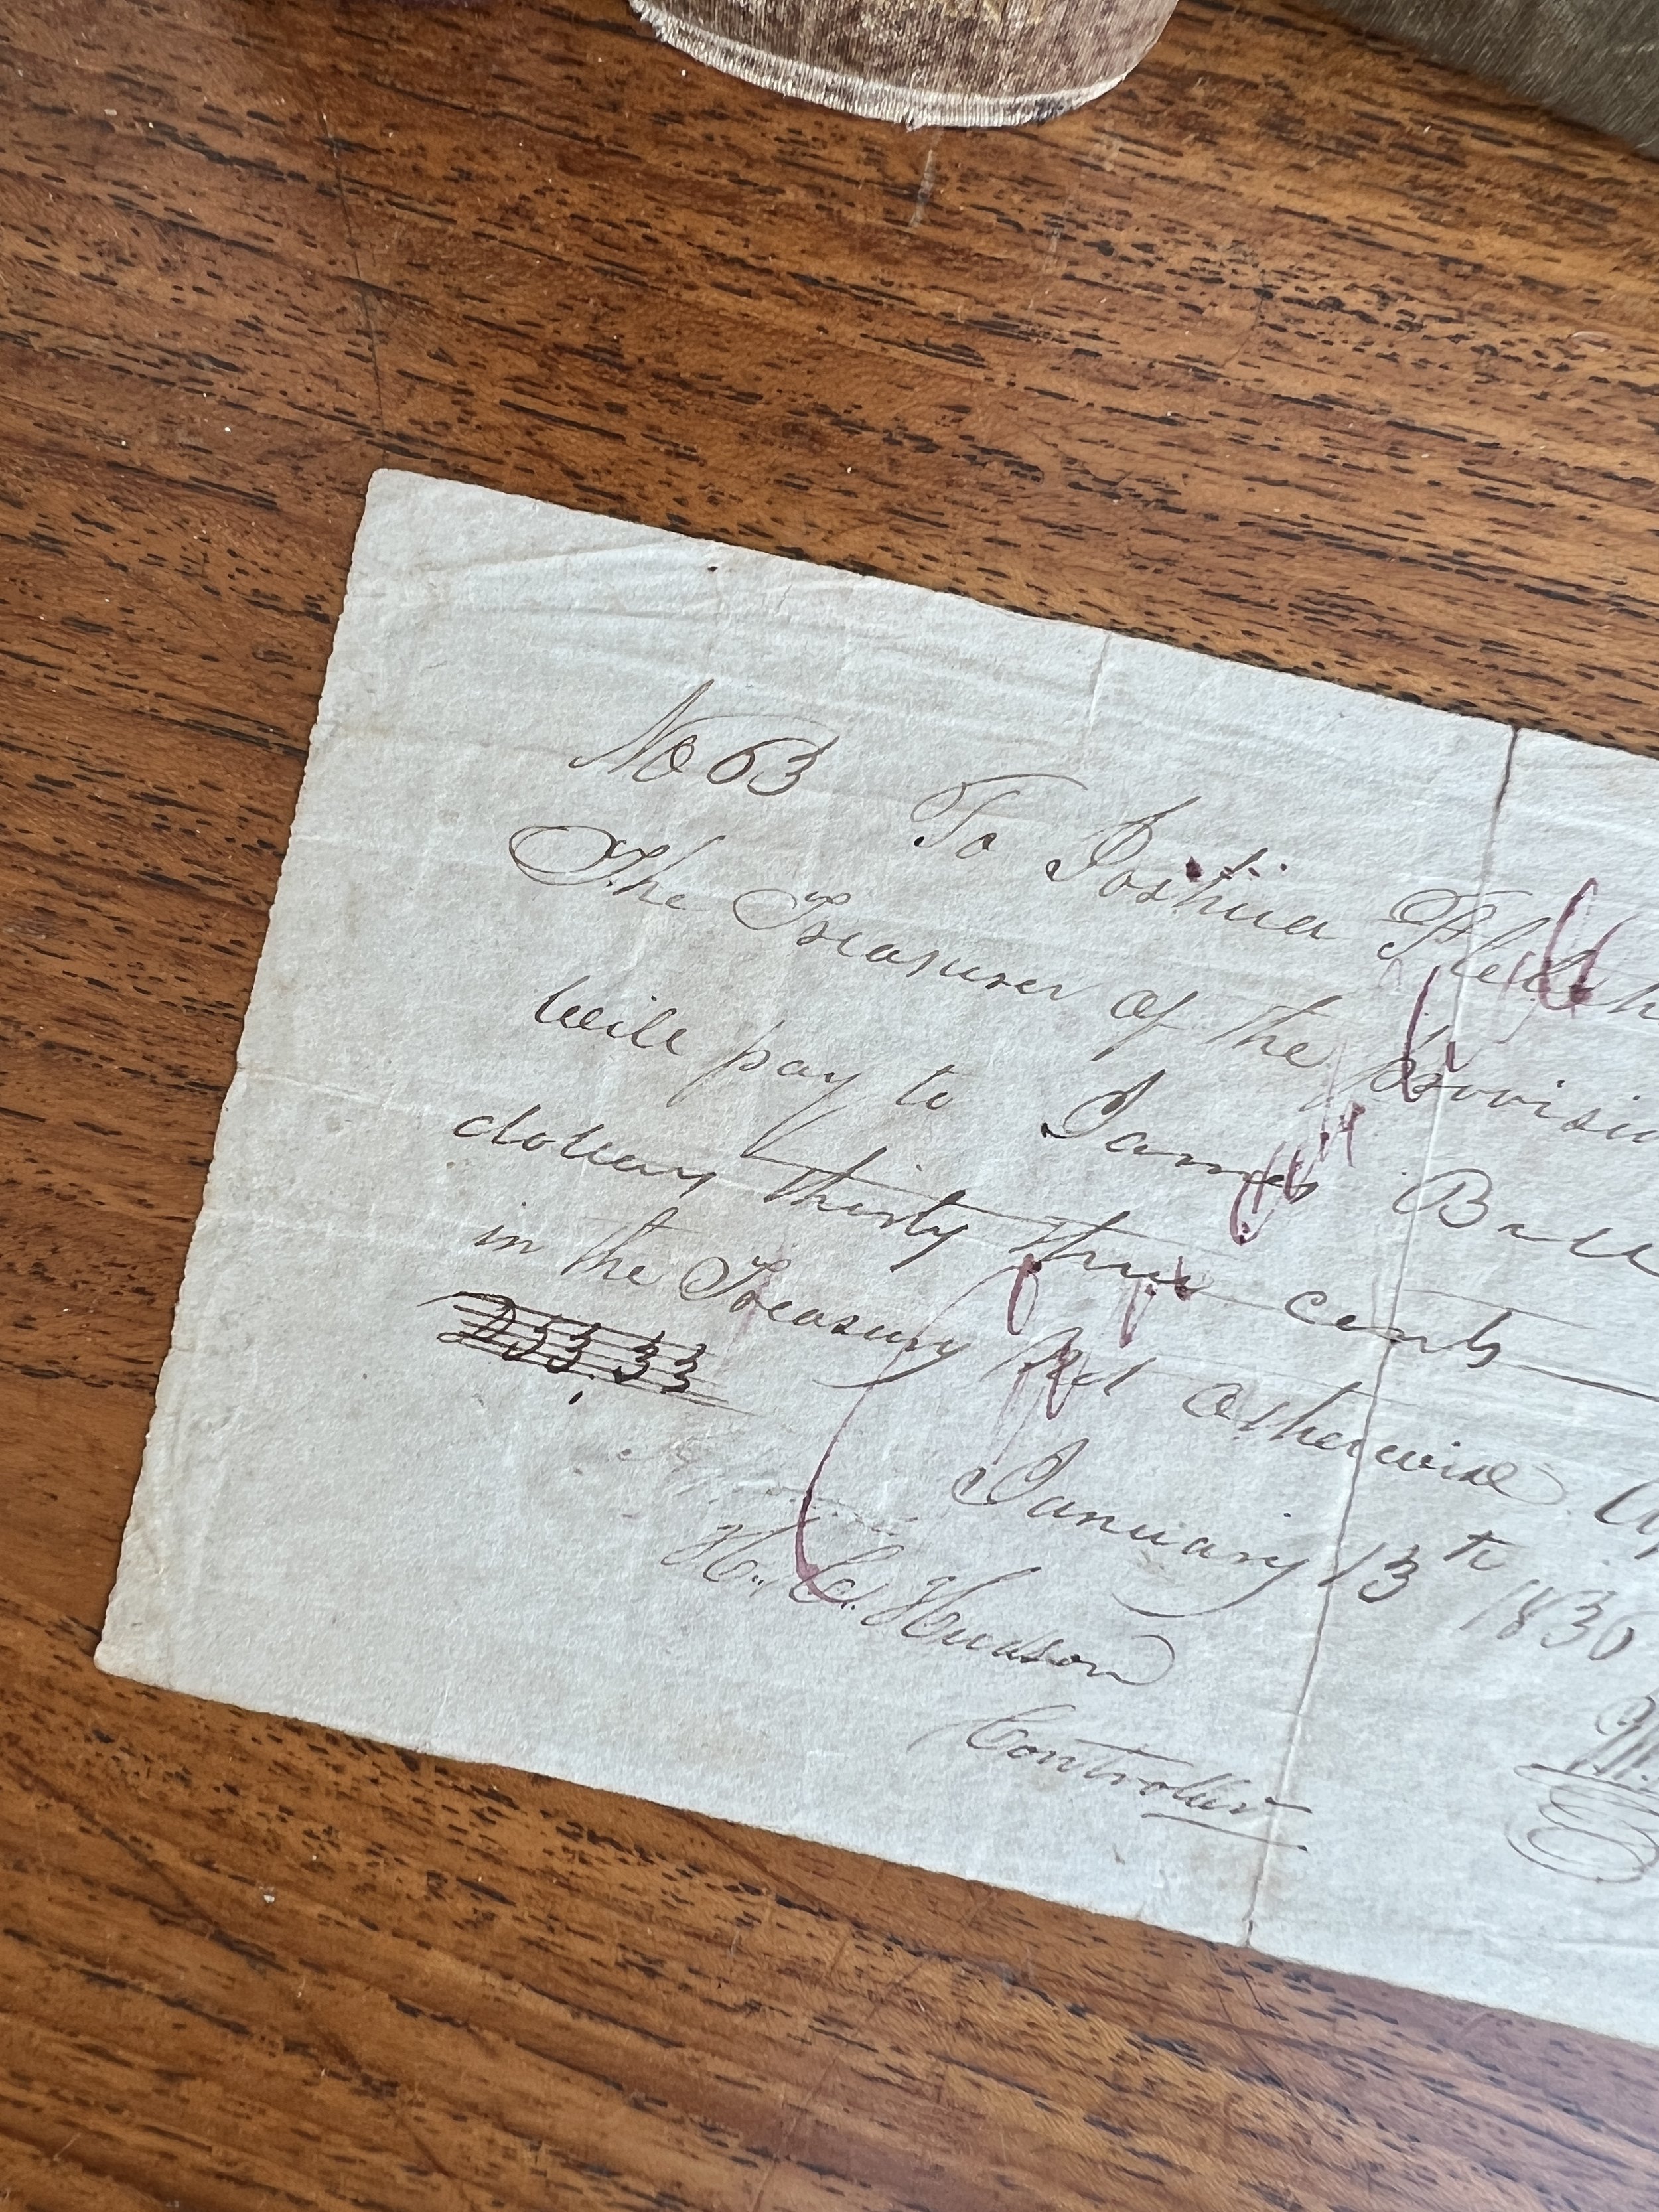 No 63
To Joshua Fletch
The Treasurer of the provisio
will pay to James Ball
dollars thirty three cents
in the Treasury not otherwise Ap
D53 33
January 13th 1836
H. C. Hudson
Controller